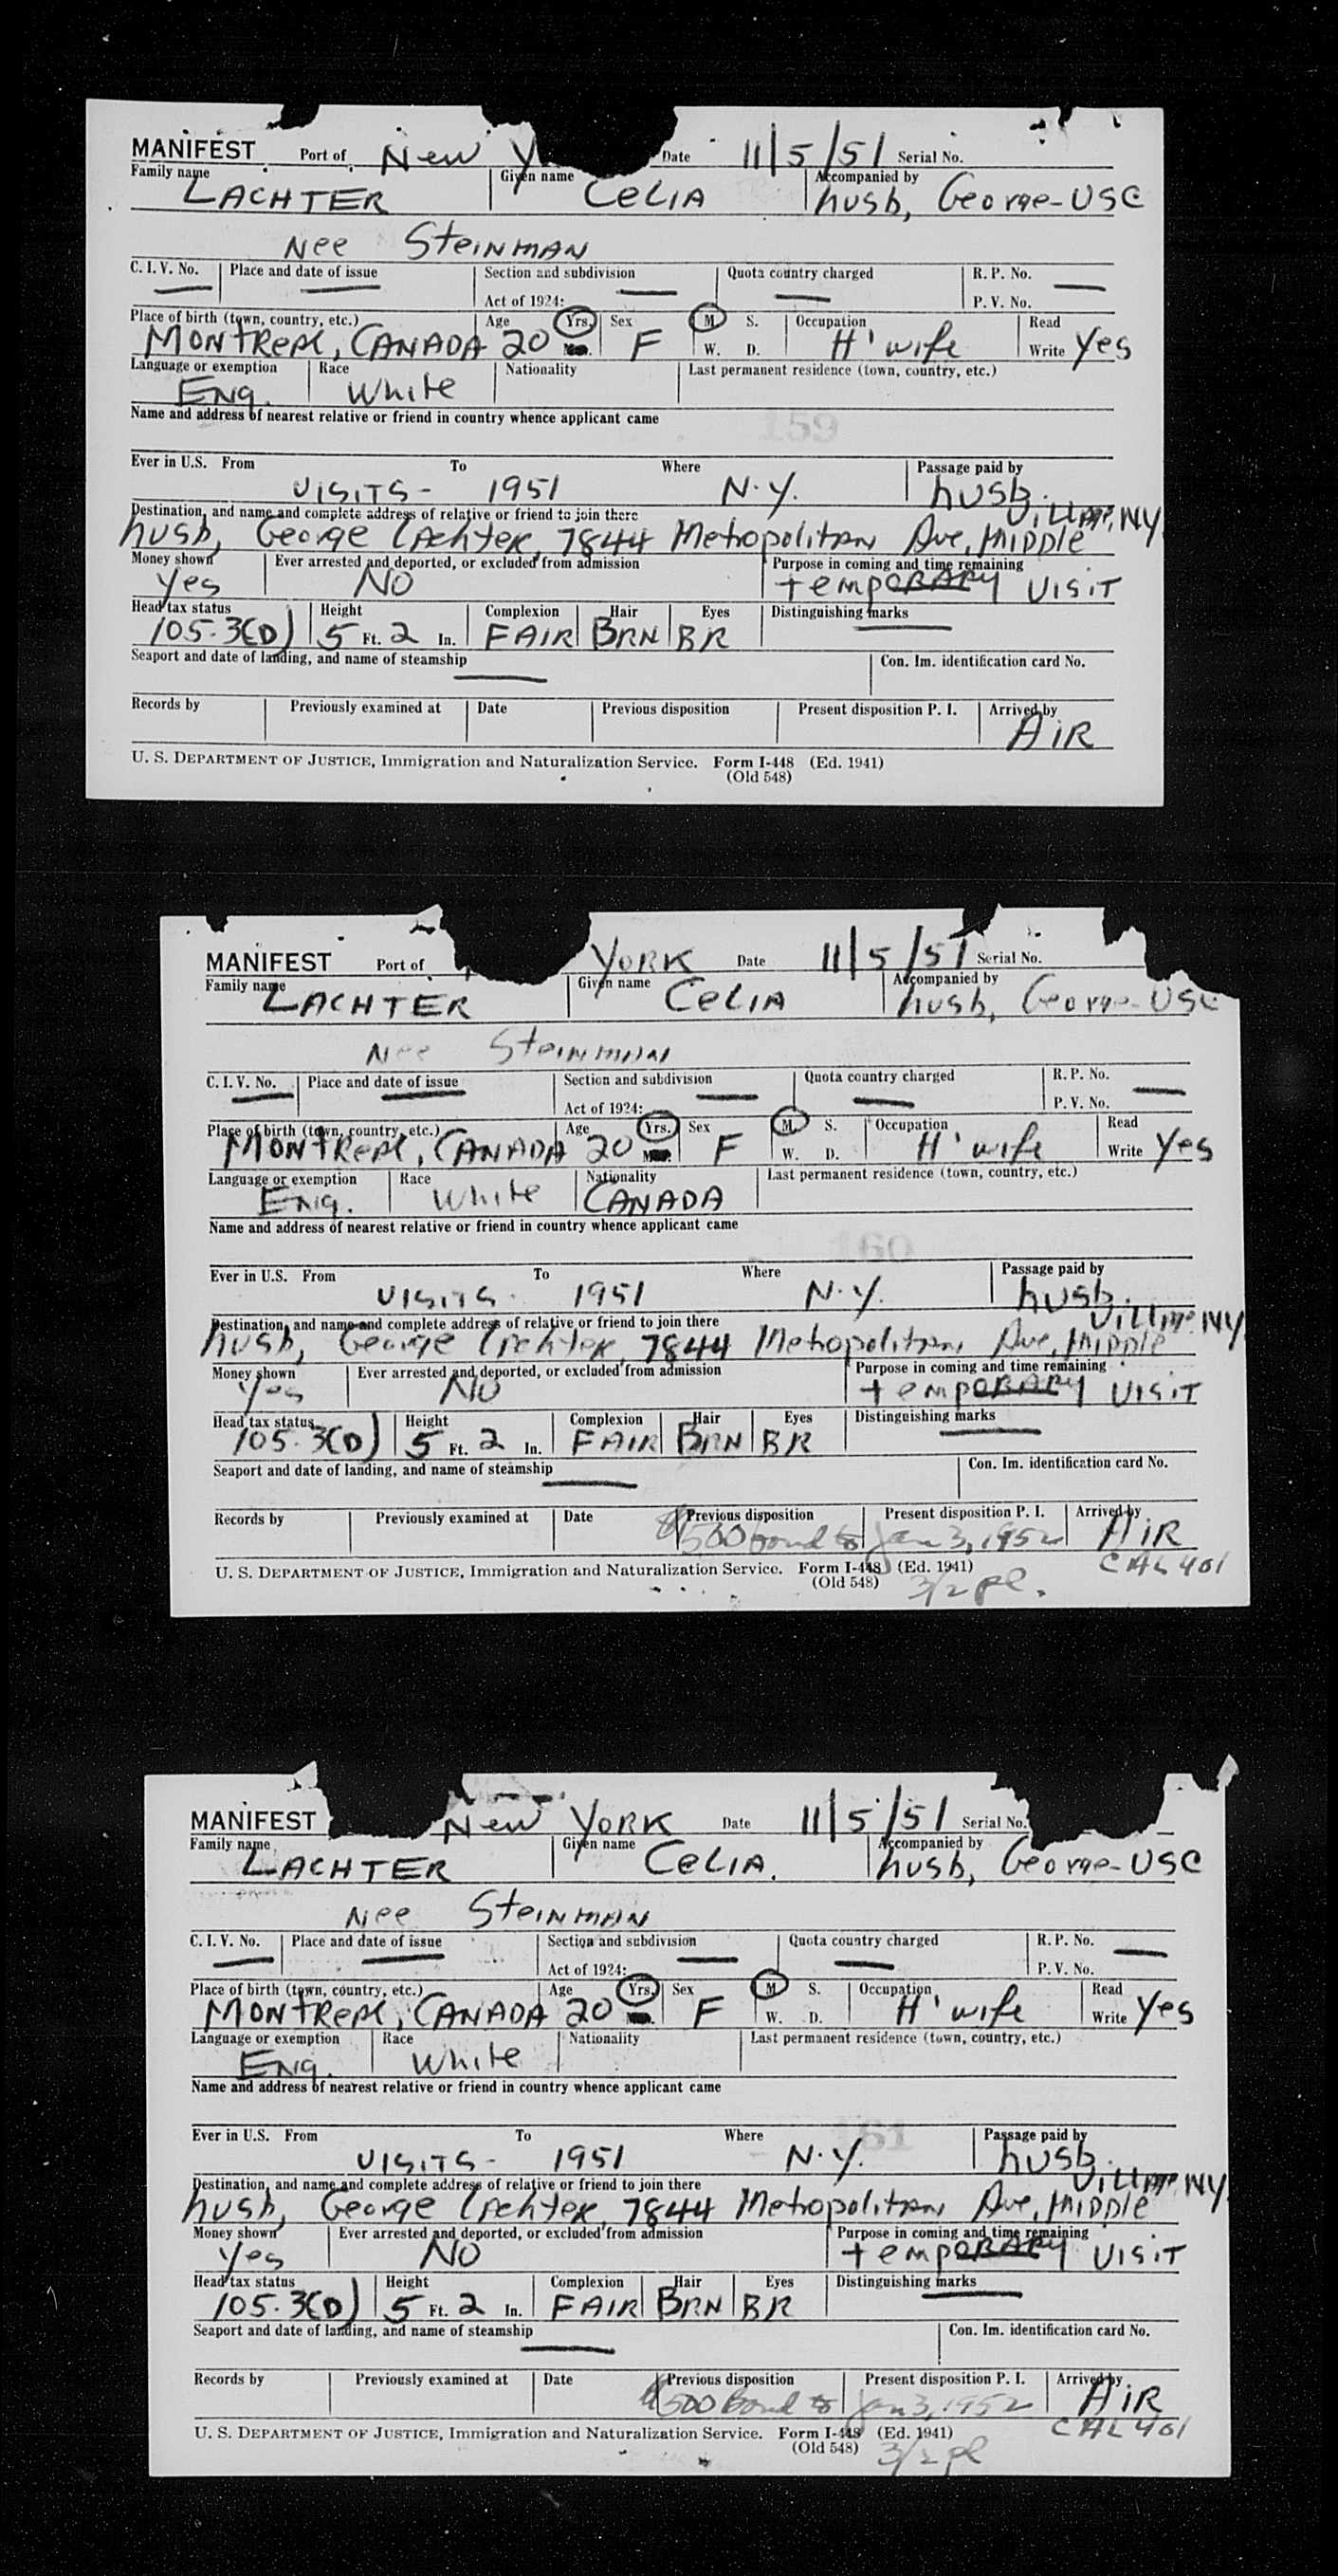 MANIFEST Port of New Y Date 11/5/51 Serial No.
Family name LACHTER Given name CELIA Accompanied by husb, George-USC
Nee Steinman
C. I. V. No. — Place and date of issue — Section and subdivision — Quota country charged — R. P. No. —
Act of 1924: P. V. No.
Place of birth (town, country, etc.) Age Yrs. Sex M. S. Occupation Read
Montreal, CANADA 20 F W. D. H'wife Write Yes
Language or exemption Race Nationality Last permanent residence (town, country, etc.)
Eng. White
Name and address of nearest relative or friend in country whence applicant came
159
Ever in U.S. From To Where Passage paid by
VISITS - 1951 N.Y. husb.
Destination, and name and complete address of relative or friend to join there
husb, George Lachter, 7844 Metropolitan Ave, Middle Village, NY
Money shown Ever arrested and deported, or excluded from admission Purpose in coming and time remaining
Yes No temporary VISIT
Head tax status Height Complexion Hair Eyes Distinguishing marks
105.3(D) 5 Ft. 2 In. FAIR BRN BR —
Seaport and date of landing, and name of steamship — Con. Im. identification card No.
Records by Previously examined at Date Previous disposition Present disposition P. I. Arrived by
AIR
U. S. DEPARTMENT OF JUSTICE, Immigration and Naturalization Service. Form I-448 (Ed. 1941)
(Old 548)
MANIFEST Port of YORK Date 11/5/51 Serial No.
Family name LACHTER Given name CELIA Accompanied by husb, George-USC
Nee Steinman
C. I. V. No. — Place and date of issue — Section and subdivision — Quota country charged — R. P. No. —
Act of 1924: P. V. No.
Place of birth (town, country, etc.) Age Yrs. Sex M. S. Occupation Read
Montreal, CANADA 20 F W. D. H'wife Write Yes
Language or exemption Race Nationality Last permanent residence (town, country, etc.)
Eng. White CANADA
Name and address of nearest relative or friend in country whence applicant came
160
Ever in U.S. From To Where Passage paid by
VISITS - 1951 N.Y. husb.
Destination, and name and complete address of relative or friend to join there
husb, George Lachter, 7844 Metropolitan Ave, Middle Village, NY
Money shown Ever arrested and deported, or excluded from admission Purpose in coming and time remaining
Yes No temporary VISIT
Head tax status Height Complexion Hair Eyes Distinguishing marks
105.3(D) 5 Ft. 2 In. FAIR BRN BR —
Seaport and date of landing, and name of steamship — Con. Im. identification card No.
Records by Previously examined at Date Previous disposition Present disposition P. I. Arrived by
$500 bond to Jan 3, 1952 AIR
U. S. DEPARTMENT OF JUSTICE, Immigration and Naturalization Service. Form I-448 (Ed. 1941) CAL 401
(Old 548) 3/2 pl.
MANIFEST New YORK Date 11/5/51 Serial No.
Family name LACHTER Given name CELIA. Accompanied by husb, George-USC
Nee Steinman
C. I. V. No. — Place and date of issue — Section and subdivision — Quota country charged — R. P. No. —
Act of 1924: P. V. No.
Place of birth (town, country, etc.) Age Yrs. Sex M. S. Occupation Read
Montreal, CANADA 20 F W. D. H'wife Write Yes
Language or exemption Race Nationality Last permanent residence (town, country, etc.)
Eng. White
Name and address of nearest relative or friend in country whence applicant came
161
Ever in U.S. From To Where Passage paid by
VISITS - 1951 N.Y. husb.
Destination, and name and complete address of relative or friend to join there
husb, George Lachter, 7844 Metropolitan Ave, Middle Village, NY
Money shown Ever arrested and deported, or excluded from admission Purpose in coming and time remaining
Yes No temporary VISIT
Head tax status Height Complexion Hair Eyes Distinguishing marks
105.3(D) 5 Ft. 2 In. FAIR BRN BR —
Seaport and date of landing, and name of steamship — Con. Im. identification card No.
Records by Previously examined at Date Previous disposition Present disposition P. I. Arrived by
$500 bond to Jan 3, 1952 AIR
U. S. DEPARTMENT OF JUSTICE, Immigration and Naturalization Service. Form I-448 (Ed. 1941) CAL 401
(Old 548) 3/2 pl